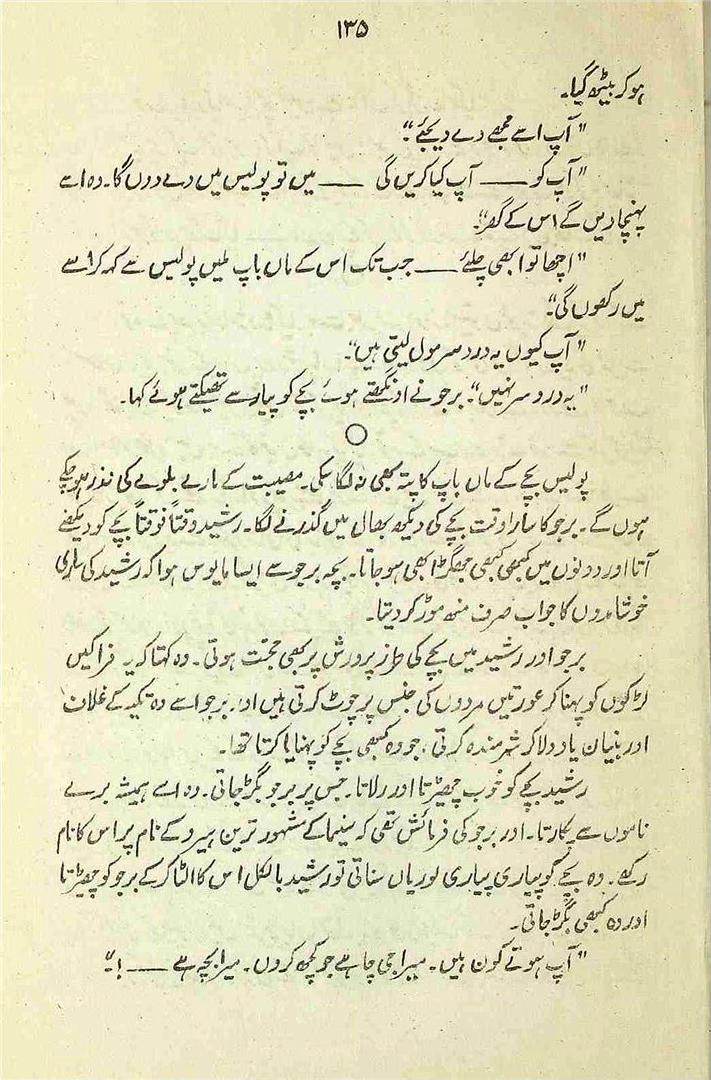 ۱۳۵
ہو کر بیٹھ گیا۔
"آپ اسے مجھے دے دیجئے"۔
"آپ کو —— آپ کیا کریں گی —— میں تو پولیس میں دے دوں گا۔ وہ اسے
پہنچا دیں گے اس کے گھر"۔
"اچھا تو ابھی چلئے —— جب تک اس کے ماں باپ ملیں پولیس سے کہہ کر اسے
میں رکھوں گی"۔
"آپ کیوں یہ درد سر مول لیتی ہیں"۔
"یہ درد سر نہیں"۔ برجو نے اونگھتے ہوئے بچے کو پیار سے تھپکتے ہوئے کہا۔
○
پولیس بچے کے ماں باپ کا پتہ بھی نہ لگا سکی۔ مصیبت کے مارے بلوے کی نذر ہو چکے
ہوں گے۔ برجو کا سارا وقت بچے کی دیکھ بھال میں گذرنے لگا۔ رشید وقتاً فوقتاً بچے کو دیکھنے
آتا اور دونوں میں کبھی کبھی جھگڑا بھی ہو جاتا۔ بچہ برجو سے ایسا مایوس ہوا کہ رشید کی ساری
خوشامدوں کا جواب صرف منھ موڑ کر دیتا۔
برجو اور رشید میں بچے کی طرز پرورش پر بھی حجت ہوتی۔ وہ کہتا کہ یہ فراکیں
لڑکوں کو پہنا کر عورتیں مردوں کی جنس پر چوٹ کرتی ہیں اور برجو اسے وہ تکیہ کے غلاف
اور بنیان یاد دلا کر شرمندہ کرتی، جو وہ کبھی بچے کو پہنایا کرتا تھا۔
رشید بچے کو خوب چھیڑتا اور رلاتا۔ جس پر برجو بگڑ جاتی۔ وہ اسے ہمیشہ برے
ناموں سے پکارتا۔ اور برجو کی فرمائش تھی کہ سینما کے مشہور ترین ہیرو کے نام پر اس کا نام
رکھے۔ وہ بچے کو پیاری پیاری لوریاں سناتی تو رشید بالکل اس کا الٹا کر کے برجو کو چھیڑتا
اور وہ کبھی بگڑ جاتی۔
"آپ ہوتے کون ہیں۔ میرا جی چاہے جو کچھ کروں۔ میرا بچہ ہے —— !۔"